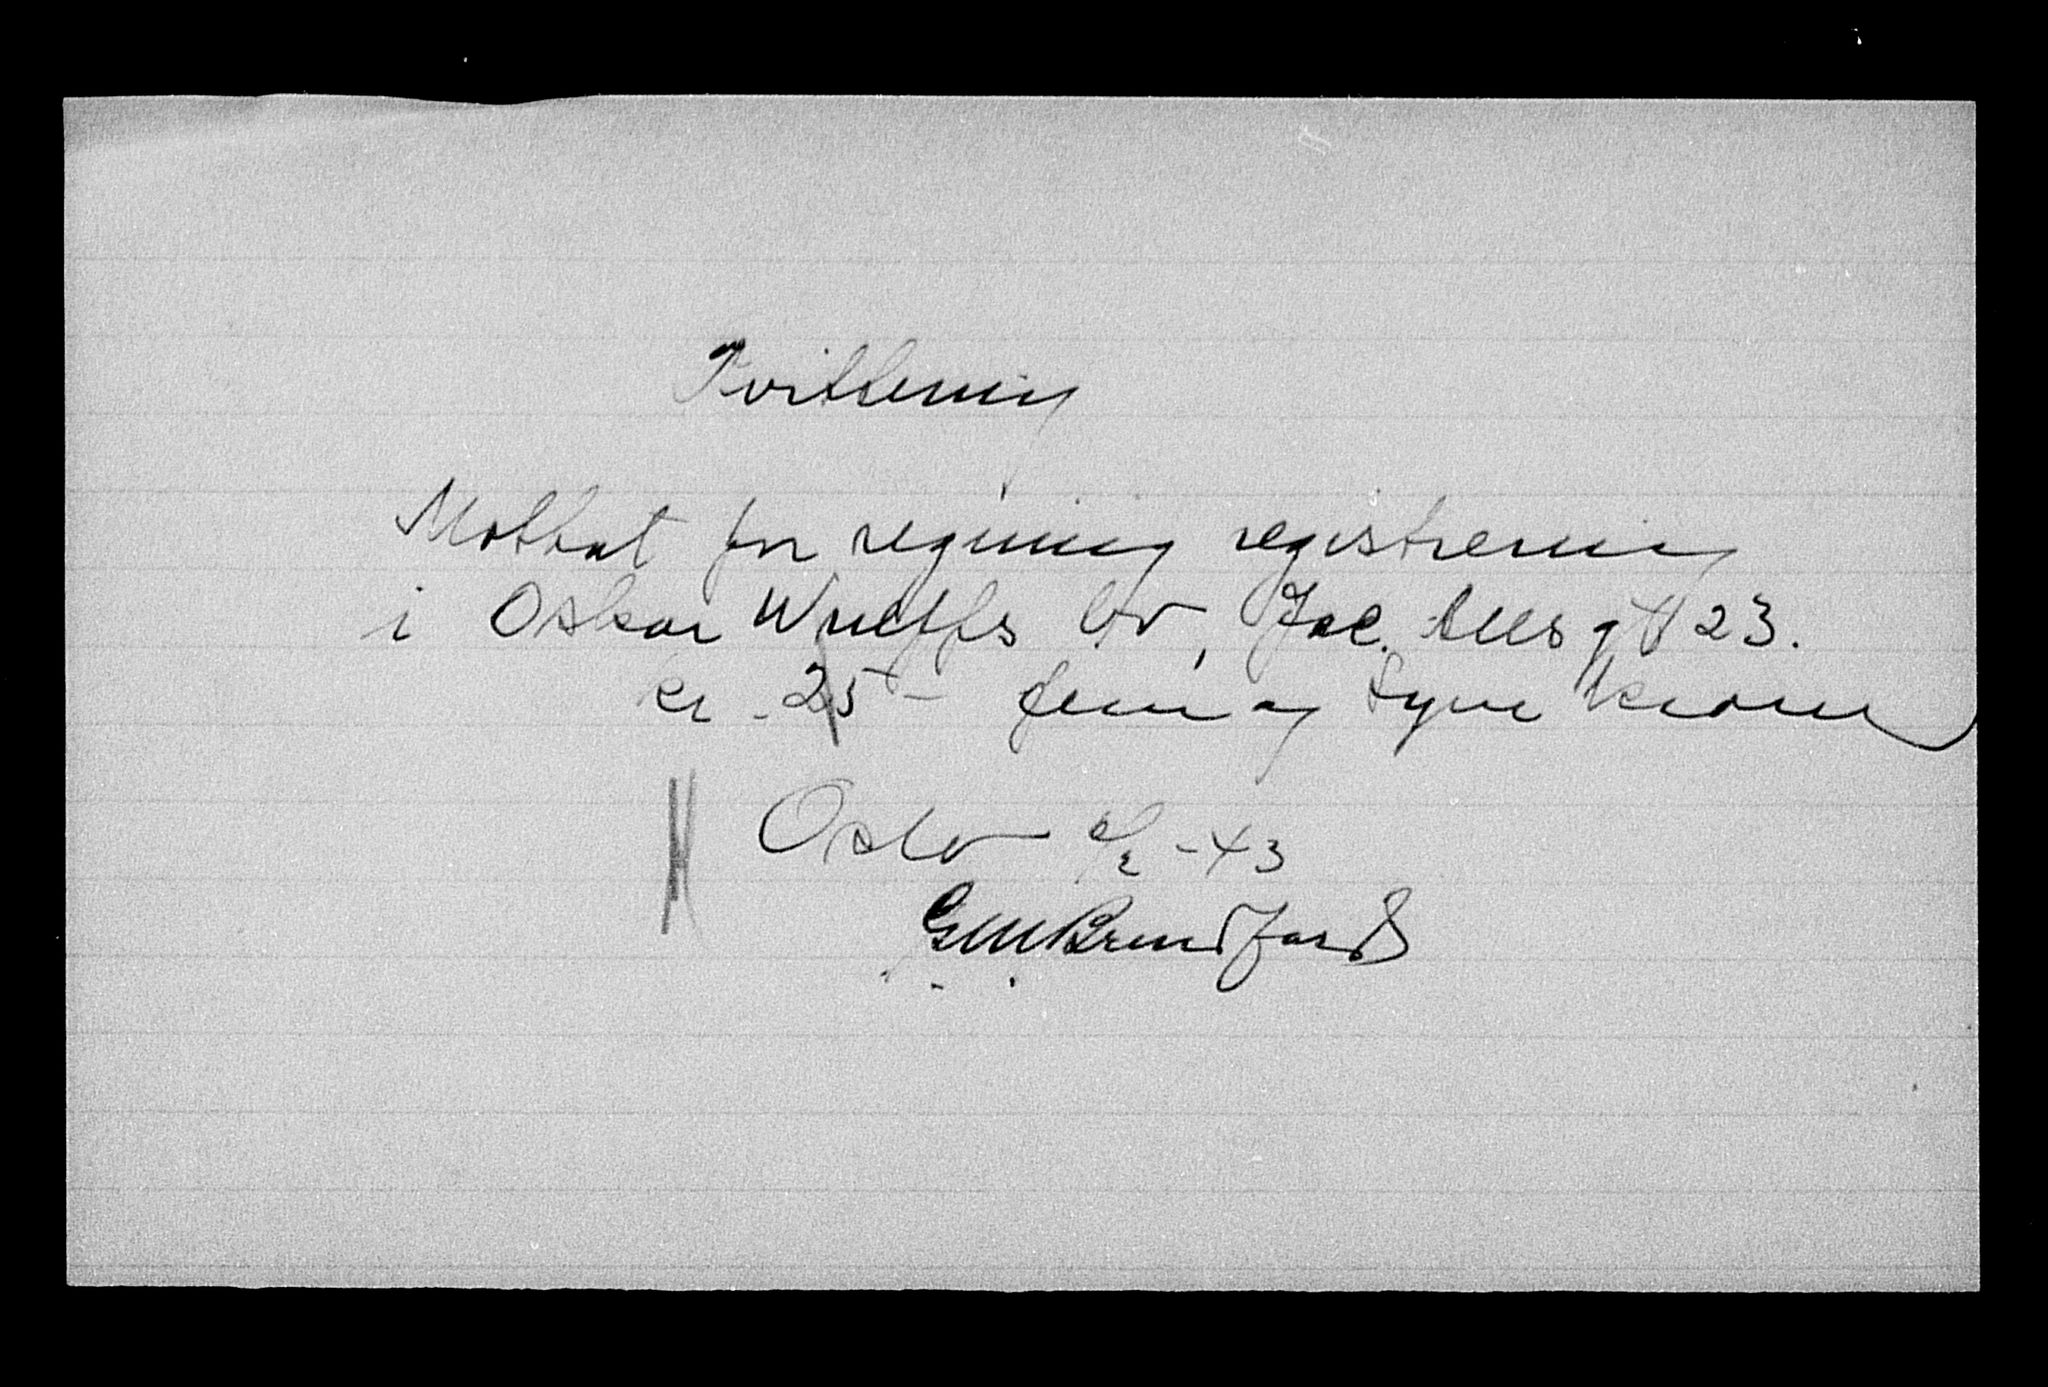 Kvittering
Mottat for regning registrering
i Oskar Wulffs bo, Jac. Aalls gt 23.
kr. 25 – fem og tyve kroner
Oslo /2 -43